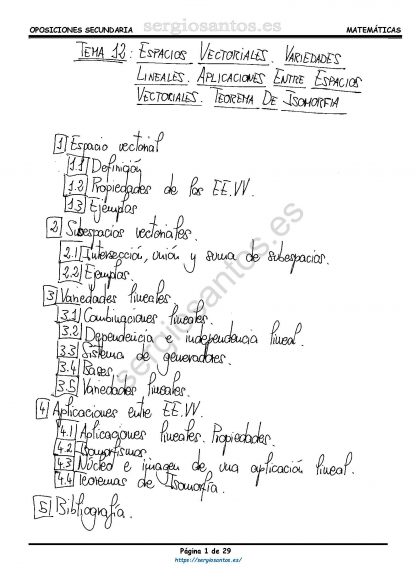 OPOSICIONES SECUNDARIA sergiosantos.es MATEMÁTICAS
TEMA 12: ESPACIOS VECTORIALES. VARIEDADES
LINEALES. APLICACIONES ENTRE ESPACIOS
VECTORIALES. TEOREMA DE ISOMORFIA
1 Espacio vectorial
1.1 Definición
1.2 Propiedades de los EE.VV.
1.3 Ejemplos
2 Subespacios vectoriales.
2.1 Intersección, unión y suma de subespacios.
2.2 Ejemplos.
3 Variedades lineales.
3.1 Combinaciones lineales.
3.2 Dependencia e independencia lineal.
3.3 Sistema de generadores.
3.4 Bases.
3.5 Variedades lineales.
4 Aplicaciones entre EE.VV.
4.1 Aplicaciones lineales. Propiedades.
4.2 Isomorfismos.
4.3 Núcleo e imagen de una aplicación lineal.
4.4 Teoremas de Isomorfía.
5 Bibliografía.
sergiosantos.es
Página 1 de 29
https://sergiosantos.es/